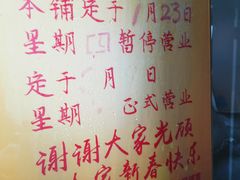 本铺定于1月23日
星期四暂停营业
定于 月 日
星期 正式营业
谢谢大家光顾
大家新春快乐